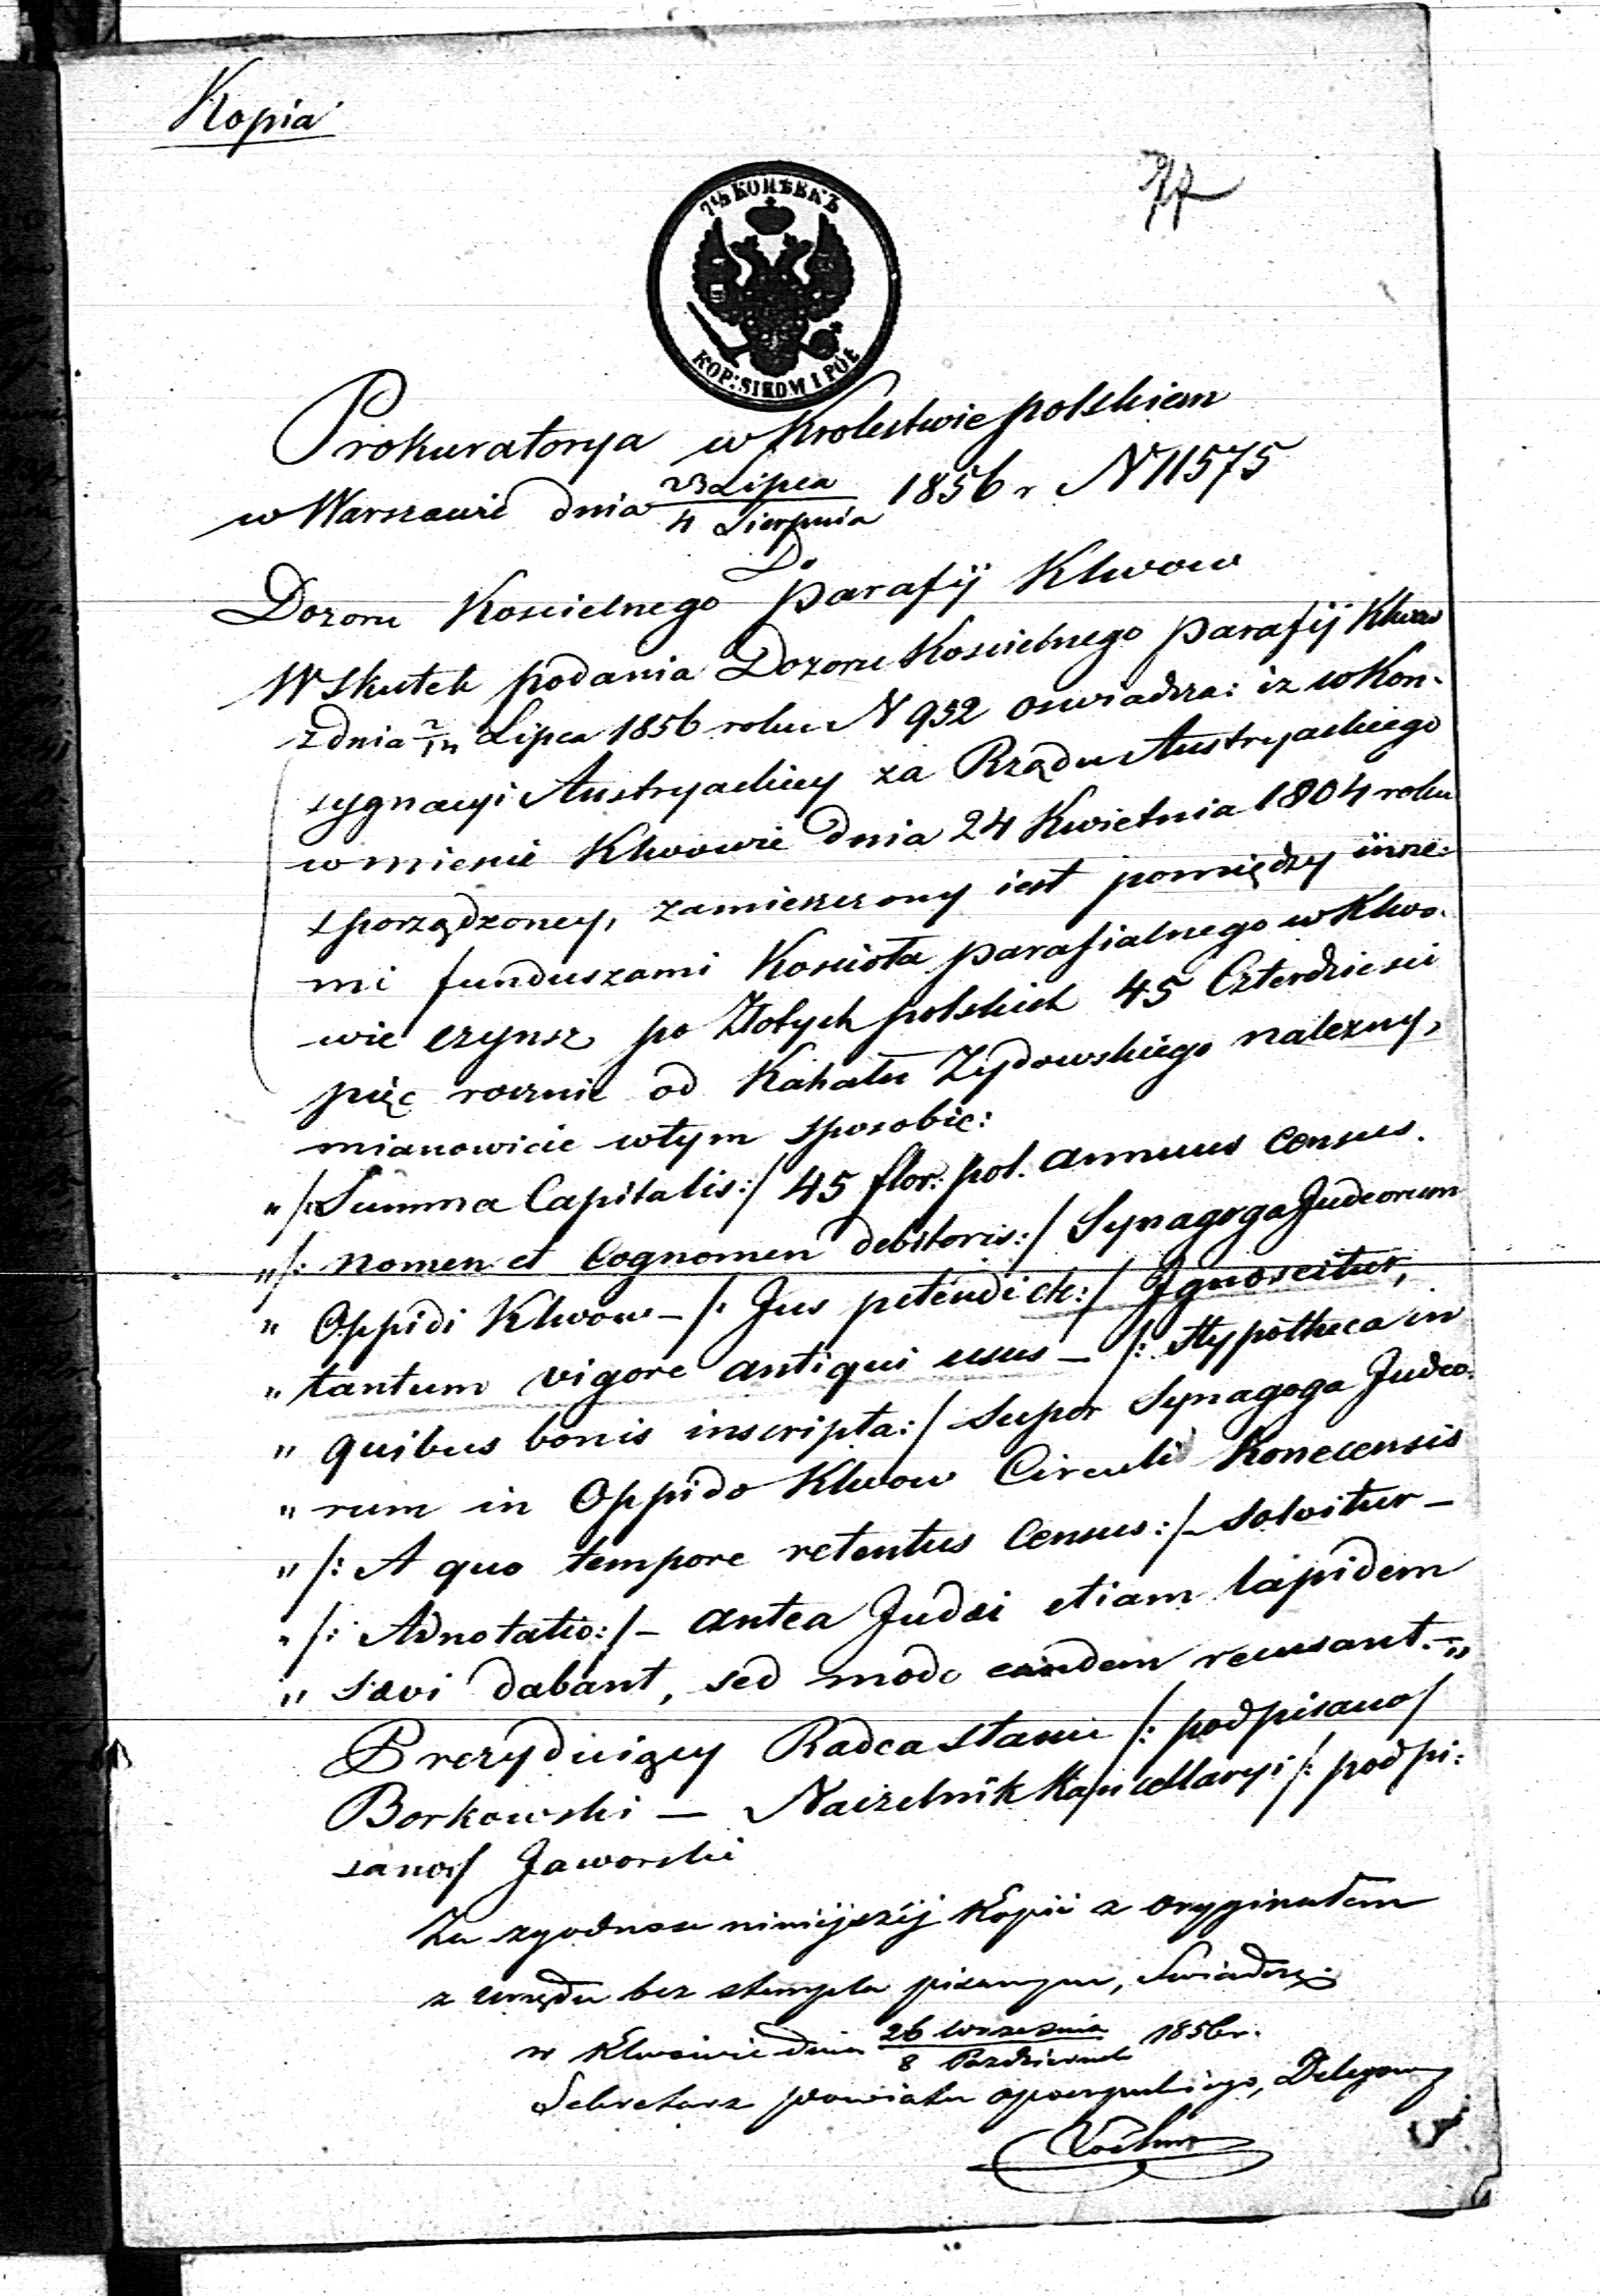 Kopia
7½ КОПѢЕКЪ
KOP: SIEDM I PÓŁ
Prokuratorya w Krolestwie polskiem
w Warszawie dnia 23 Lipca / 4 Sierpnia 1856 r N 11575
Do
Dozoru Koscielnego parafij Klwow
W Skutek podania Dozoru Koscielnego parafij Klwow
z dnia Lipca 1856 roku N 932 oswiadsza: iz w Kon-
sygnacyi Austryackiey za Rządu Austryackiego
w miescie Klwowie dnia 24 Kwietnia 1804 roku
sporządzoney, zamieszczony iest pomiędzy inne:
mi funduszami Kościoła parafialnego w Klwo-
wie czynsz po Złotych polskich 45 Czterdziesci
pięc rocznie od Kahału Zydowskiego nalezny,
mianowicie w tym sposobie:
" /: Summa Capitalis :/ 45 flor: pol. annuus census.
" /: nomen et Cognomen debitoris :/ Synagoga Judeorum
" Oppidi Klwow – /: Jus petendi etc :/ Ignoscitur,
" tantum vigore antiqui usus – /: Hypotheca in
" quibus bonis inscripta :/ Super Synagoga Judeo-
" rum in Oppido Klwow Circuli Konecensis
" /: A quo tempore retentus Census :/ – Solvitur –
" /: Adnotatio :/ – antea Judæi etiam lapidem
" sævi dabant, sed modo eundem recusant. – "
Prezyduiący Radca Stanu /: podpisano /
Borkowski – Naczelnik Kancellaryi /: podpi:
sano / Jaworski
Za zgodnosc niniejszéj Kopii z oryginałem
z urzędu bez stempla pisanym, Swiadczę.
w Klwowie dnia 26 Wrzesnia / 8 Pazdziernik 1856 r.
Sekretarz powiatu opoczynskiego, Delegowany